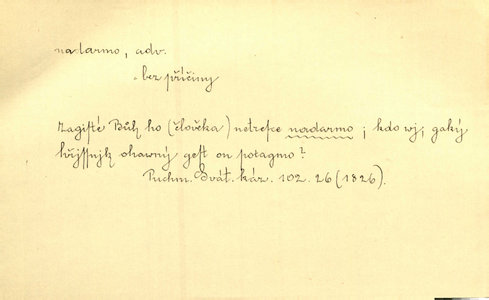 nadarmo, adv.
bez příčiny
Zagisté Bůh ho (člověka) netresce nadarmo; kdo wj, gaký
hřjssnjk ohawný gest on potagmo?
Puchm. Svát. káz. 102. 26 (1826).